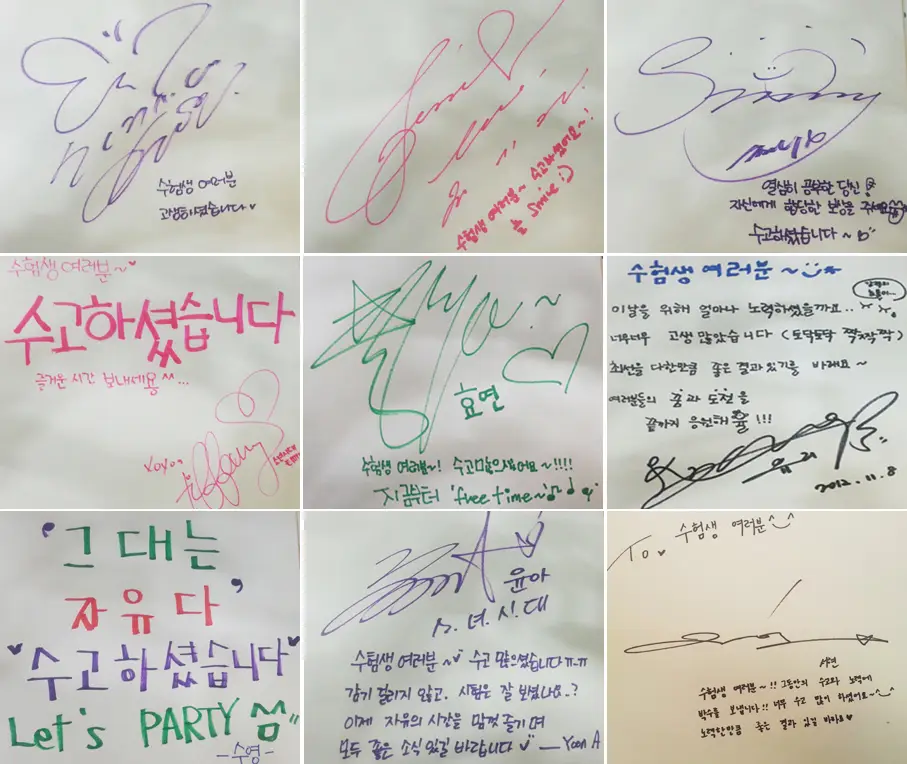 수험생 여러분
고생하셨습니다♥
수험생 여러분~ 수고하셨어요~!
늘 smile :)
Sunny
열심히 공부한 당신!
자신에게 합당한 보상을 주세요
수고하셨습니다~
수험생 여러분~♥
수고하셨습니다
즐거운 시간 보내세용 ^^...
xoxo,
tiffany
효연
수험생 여러분~! 수고많으셨어요~!!!!
지금부터 'free time~♪♩
수험생 여러분 ~
이날을 위해 얼마나 노력하셨을까요..
너무너무 고생 많았습니다 (토닥토닥 짝짝짝)
최선을 다한만큼 좋은 결과있기를 바래요~
여러분들의 꿈과 도전을
끝까지 응원해 율!!!
유리
2012.11.8
'그대는
자유다'
"수고하셨습니다"
Let's PARTY
-수영-
윤아
소.녀.시.대
수험생 여러분~ 수고 많으셨습니다ㅠ-ㅠ
감기 걸리지 않고. 시험은 잘 보셨나요..?
이제 자유의 시간을 맘껏 즐기며
모두 좋은 소식 있길 바랍니다 — Yoon A
To♥ 수험생 여러분^_^
서현
수험생 여러분~!! 그동안의 수고와 노력에
박수를 보냅니다!! 너무 수고 많이 하셨어요~^^
노력한만큼 좋은 결과 있길 바라요♥